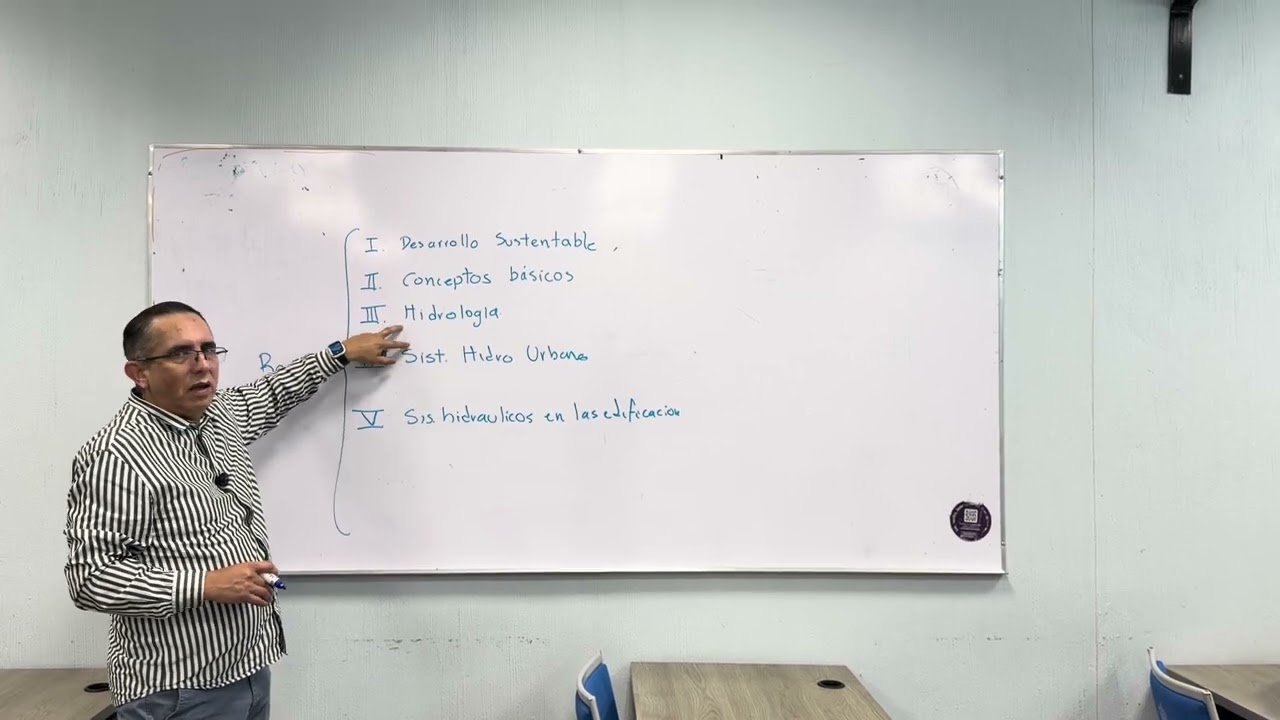 I. Desarrollo Sustentable
II. Conceptos básicos
III. Hidrología
Sist. Hidro Urbano
V Sis. hidraulicos en las edificacion